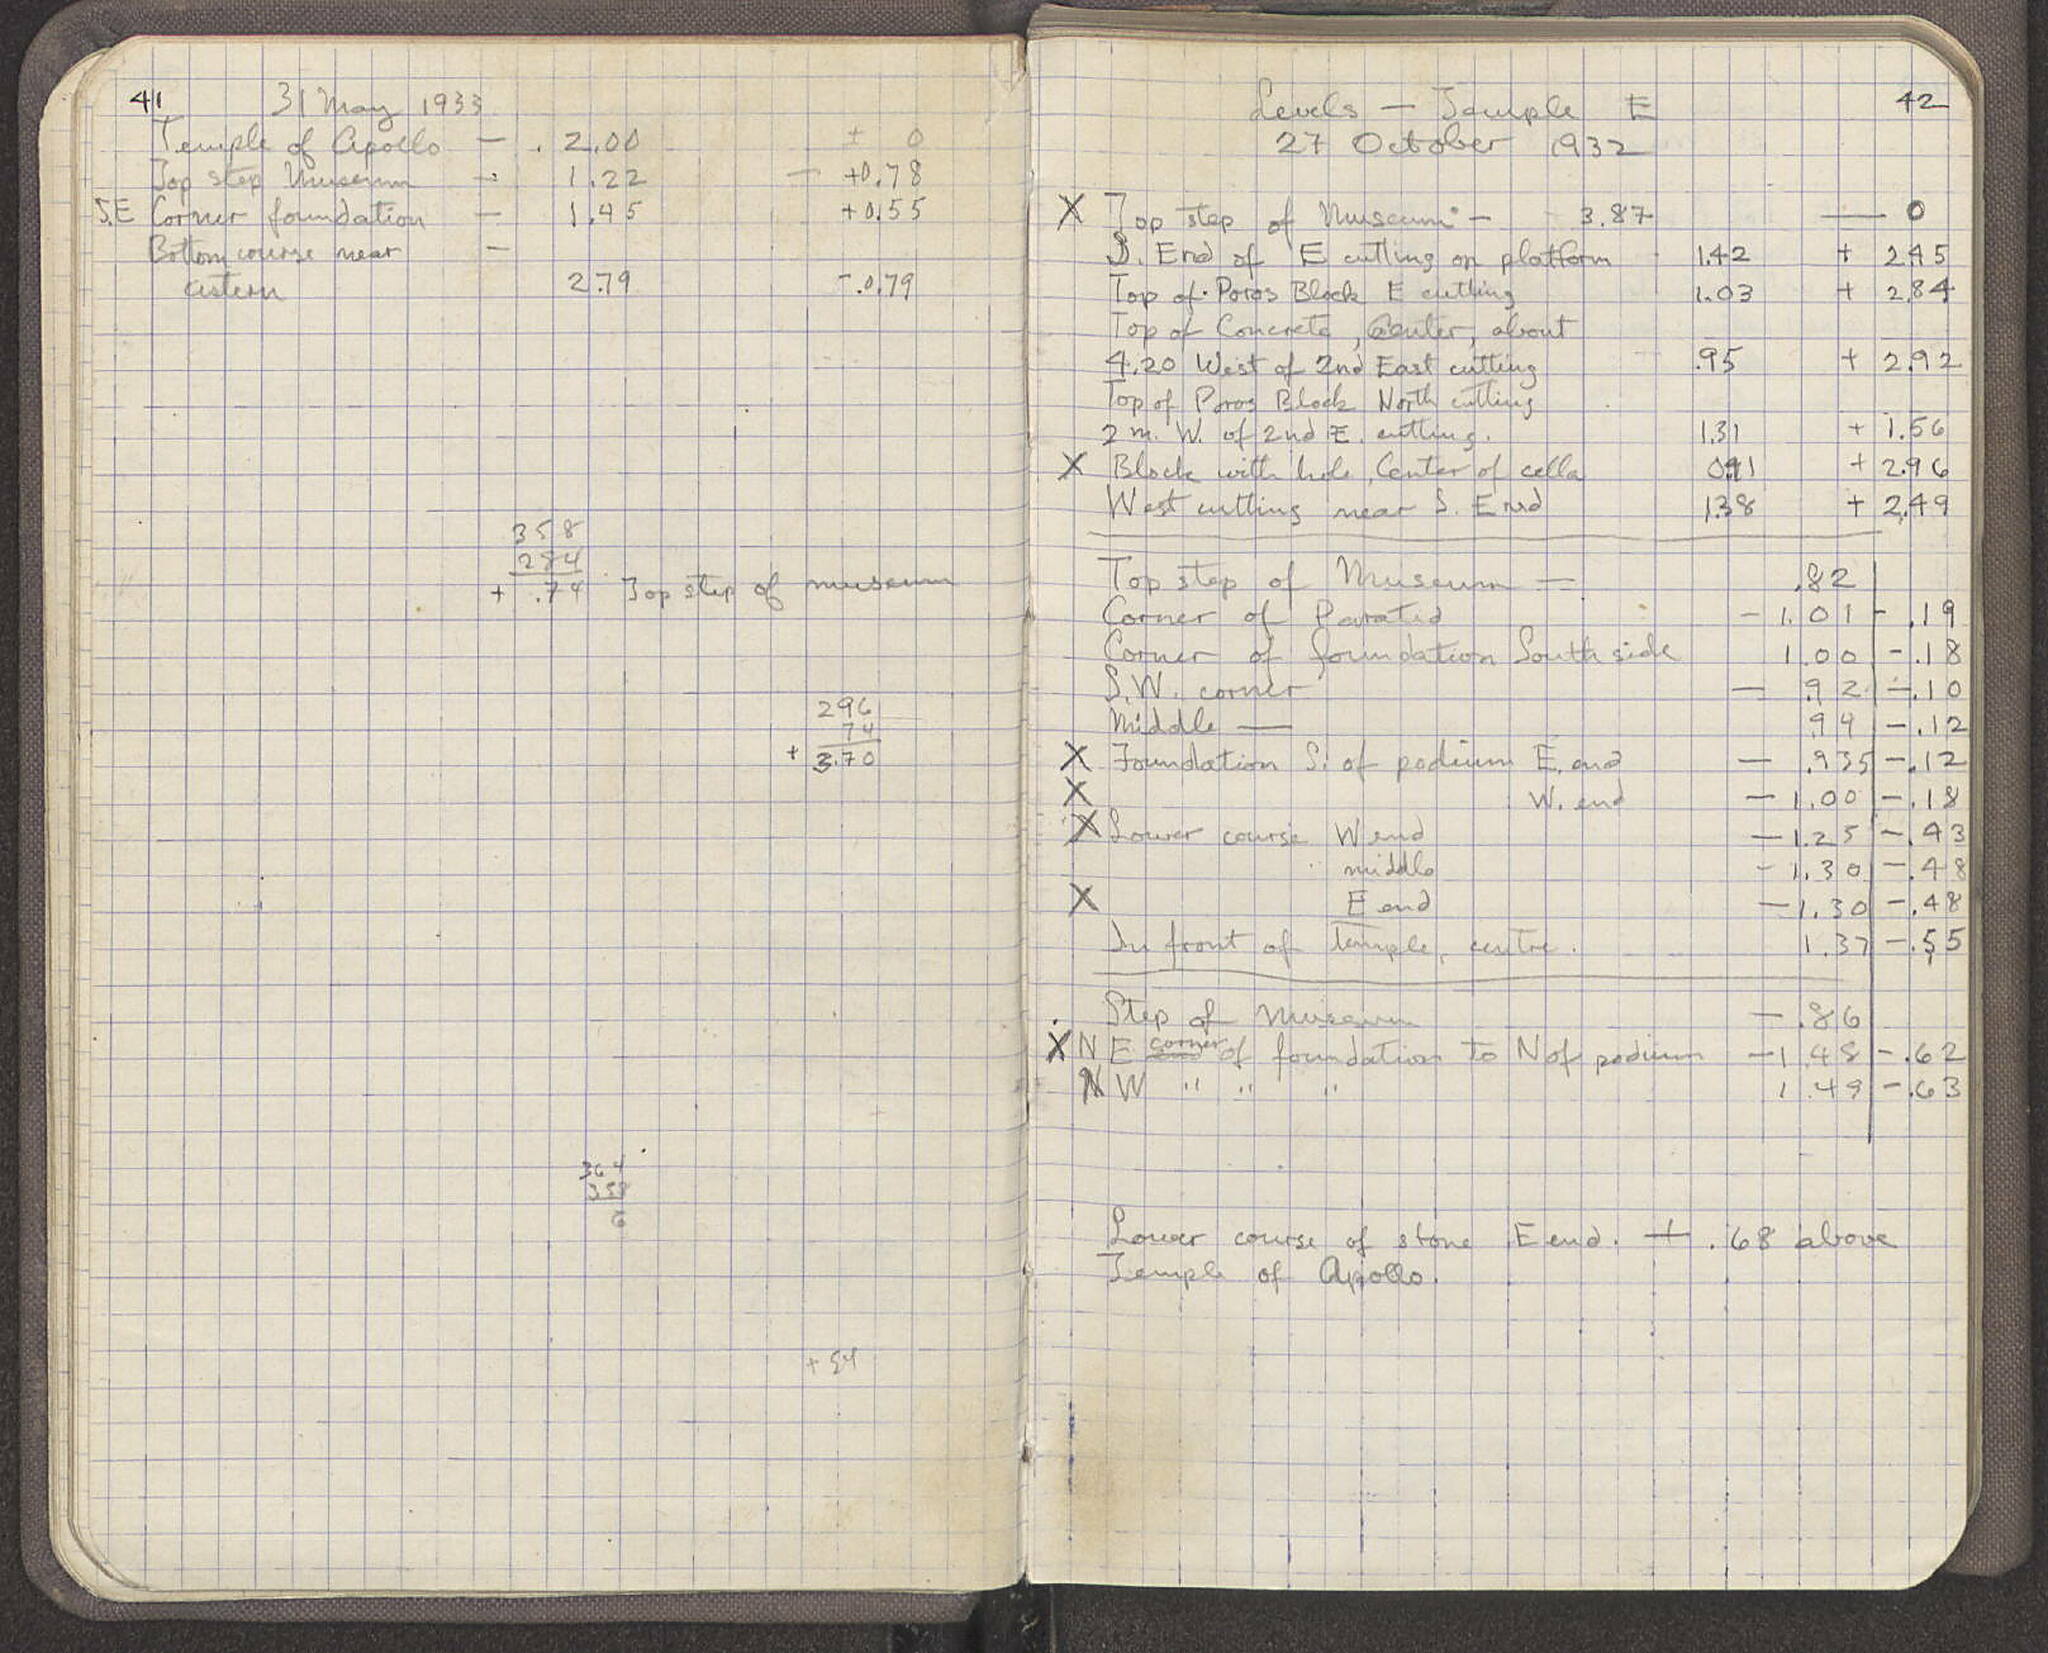 41
31 May 1933
Temple of Apollo — . 2.00 ± 0
Top step Museum — 1.22 — +0.78
S.E Corner foundation — 1.45 +0.55
Bottom course near —
cistern 2.79 -.0.79
358
284
+ .74 Top step of museum
296
74
+ 3.70
364
358
6
+ 54
42
Levels — Temple E
27 October 1932
X Top step of Museum — 3.87 — 0
S. End of E cutting on platform 1.42 + 2.45
Top of Poros Block E cutting 1.03 + 2.84
Top of Concrete, Center, about
4.20 West of 2nd East cutting .95 + 2.92
Top of Poros Block North cutting
2 m. W. of 2nd E. cutting. 1.31 + 1.56
X Block with hole, Center of cella 0.91 + 2.96
West cutting near S. End 1.38 + 2.49
Top step of Museum — .82
Corner of — 1.01 - .19
Corner of foundation South side 1.00 - .18
S.W. corner — .92 - .10
Middle — .94 - .12
X Foundation S. of podium E. end — .935 - .12
X W. end — 1.00 - .18
X Lower course W end — 1.25 - .43
middle - 1.30 - .48
X E end — 1.30 - .48
In front of Temple, centre. 1.37 - .55
Step of Museum — .86
X N E corner of foundation to N of podium — 1.48 - .62
N W " " " 1.49 - .63
Lower course of stone E end. + .68 above
Temple of Apollo.